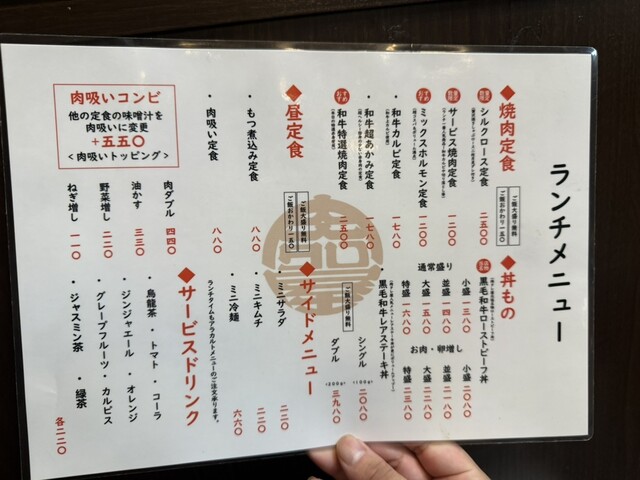 ランチメニュー
◆焼肉定食
ご飯大盛り無料
ご飯おかわり一五〇
・シルクロース定食 二五〇〇
・サービス焼肉定食 一二〇〇
おすすめ
・ミックスホルモン定食 一二〇〇
・和牛カルビ定食 一七八〇
・和牛超あかみ定食 一七八〇
おすすめ
・和牛特選焼肉定食 二五〇〇
◆昼定食
ご飯大盛り無料
ご飯おかわり一五〇
・もつ煮込み定食 八八〇
・肉吸い定食 八八〇
肉吸いコンビ
他の定食の味噌汁を
肉吸いに変更
+五五〇
<肉吸いトッピング>
肉ダブル 四四〇
油かす 三三〇
野菜増し 二二〇
ねぎ増し 一一〇
◆丼もの
・黒毛和牛ローストビーフ丼
通常盛り
小盛 一三八〇
並盛 一四八〇
大盛 一五八〇
特盛 一六八〇
お肉・卵増し
小盛 二〇八〇
並盛 二一八〇
大盛 二二八〇
特盛 二三八〇
・黒毛和牛レアステーキ丼
ご飯大盛り無料
シングル(100g) 二〇八〇
ダブル(200g) 三九八〇
◆サイドメニュー
・ミニサラダ 二二〇
・ミニキムチ 二二〇
・ミニ冷麺 六六〇
ランチタイムもアラカルトメニューのご注文承ります。
◆サービスドリンク
・烏龍茶 ・トマト ・コーラ
・ジンジャエール ・オレンジ
・グレープフルーツ ・カルピス
・ジャスミン茶 ・緑茶
各二二〇